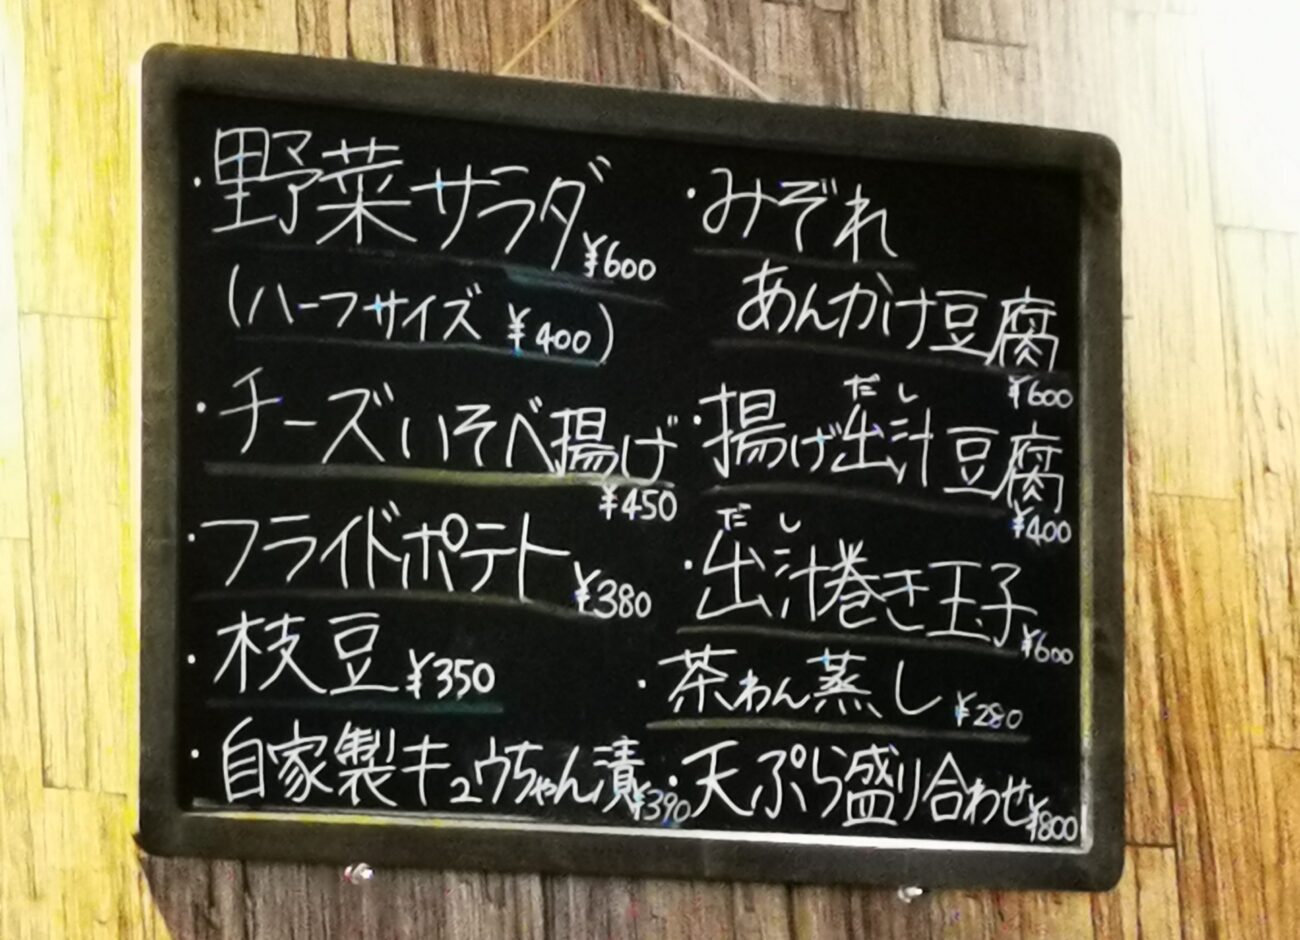 ・野菜サラダ ¥600
(ハーフサイズ ¥400)
・チーズいそべ揚げ
¥450
・フライドポテト ¥380
・枝豆 ¥350
・自家製キュウちゃん漬 ¥390
・みぞれ
あんかけ豆腐
¥600
だし
・揚げ出汁豆腐
¥400
だし
・出汁巻き玉子 ¥600
・茶わん蒸し ¥280
・天ぷら盛り合わせ ¥800